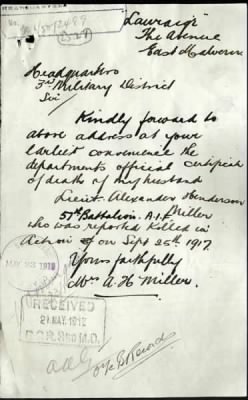 HEADQUARTERS
No. M45712489
B. 27
"Lauraig"
The Avenue
East Malvern
Headquarters
3rd Military District
Sir
Kindly forward to
above address at your
earliest convenience the
departments official certificate
of death of my husband
Lieut. Alexander Henderson
Miller
57th Battalion. A.I.F
who was reported Killed in
Action on Sept 25th 1917.
Yours faithfully
Mrs A. H Miller.
MAY 23 1918
RECEIVED
21 MAY. 1918
3RD M.D.
A.A.G
O/c B Records